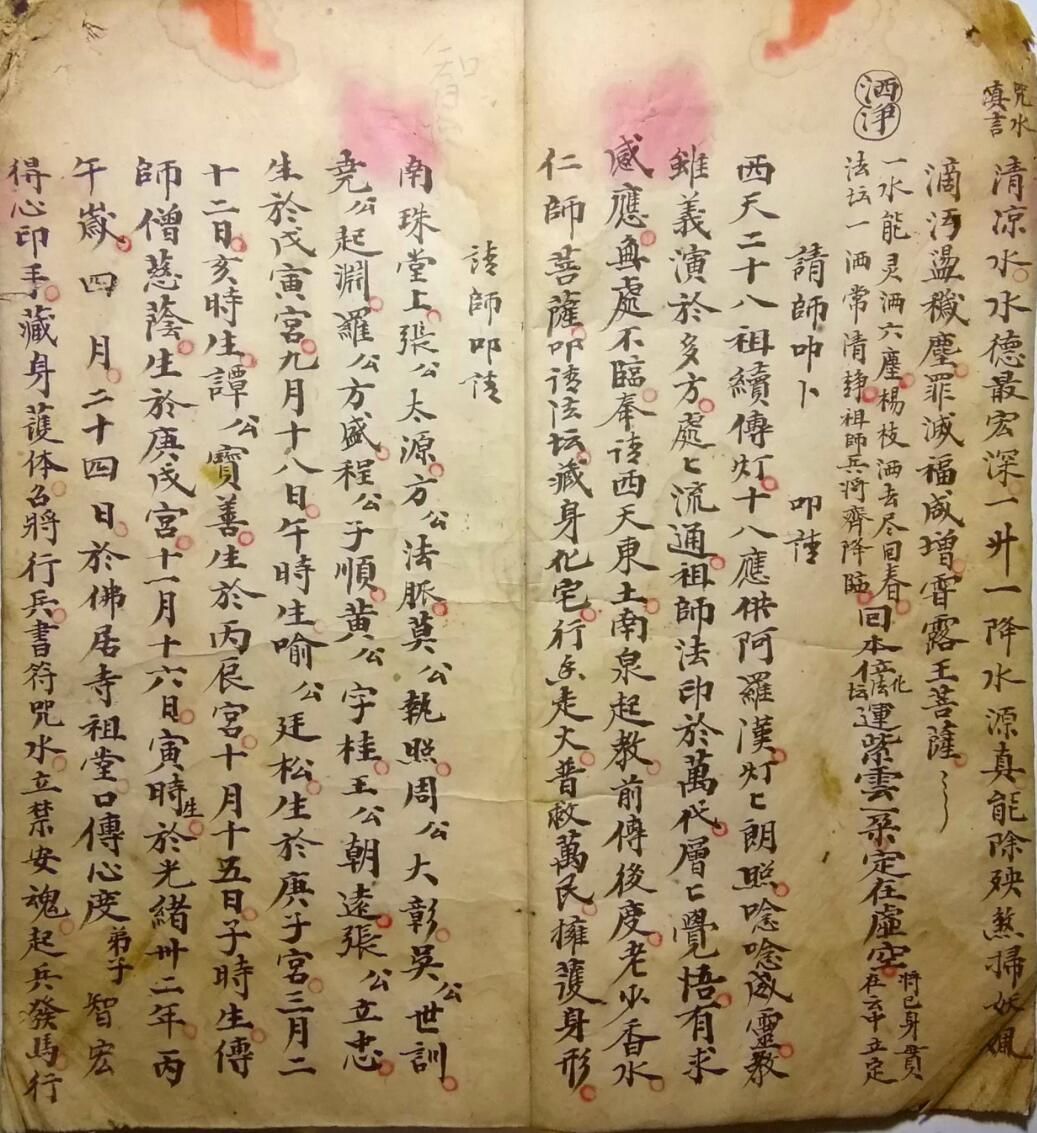 咒水
真言
清凉水水德最宏深一升一降水源真能除殃煞掃妖
滴污盪穢塵罪滅福咸增霄露王菩薩
洒淨
一水能灵洒六塵楊枝洒去尽回春
法坛一洒常清静祖師兵将齊降臨
回本位立化法坛運紫雲一朵定在虛空
将己身貫
在云中立定
請師叩卜 叩請
西天二十八祖續傳灯十八應供阿羅漢灯匕朗照唸唸威靈教
雖義演於多方處匕流通祖師法印於萬代層匕覺悟有求
感應無處不臨奉请西天東土南泉起教前傳後度老少香水
仁師菩薩叩请法坛藏身化宅行走大普救萬民擁護身形
请師叩请
南珠堂上張公太源方公法脈莫公執照周公大彰吳公世訓
堯公起淵羅公方盛程公子順黄公字桂王公朝遠張公立忠
生於戊寅宮九月十八日午時生喻公廷松生於庚子宮三月二
十二日亥時生譚公寶善生於丙辰宮十月十五日子時生傳
師僧慈蔭生於庚戌宮十一月十六日寅時生於光緒卅二年丙
午歲四月二十四日於佛居寺祖堂口傳心度弟子智宏
得心印手藏身護体召將行兵書符咒水立禁安魂起兵發馬行